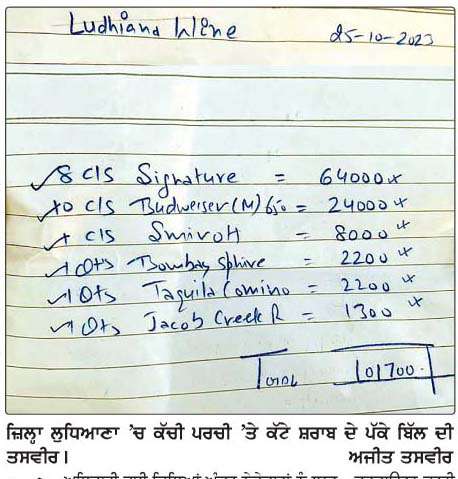 Ludhiana Wine 25-10-2023
8 C/S Signature = 64000
10 C/S Budweiser (M) 650 = 24000
1 C/S Smiroff = 8000
1 Qts Bombay Sphire = 2200
1 Qts Taquila Comino = 2200
1 Qts Jacob Creek R = 1300
Total 101700
ਜ਼ਿਲ੍ਹਾ ਲੁਧਿਆਣਾ 'ਚ ਕੱਚੀ ਪਰਚੀ 'ਤੇ ਕੱਟੇ ਸ਼ਰਾਬ ਦੇ ਪੱਕੇ ਬਿੱਲ ਦੀ
ਤਸਵੀਰ। ਅਜੀਤ ਤਸਵੀਰ